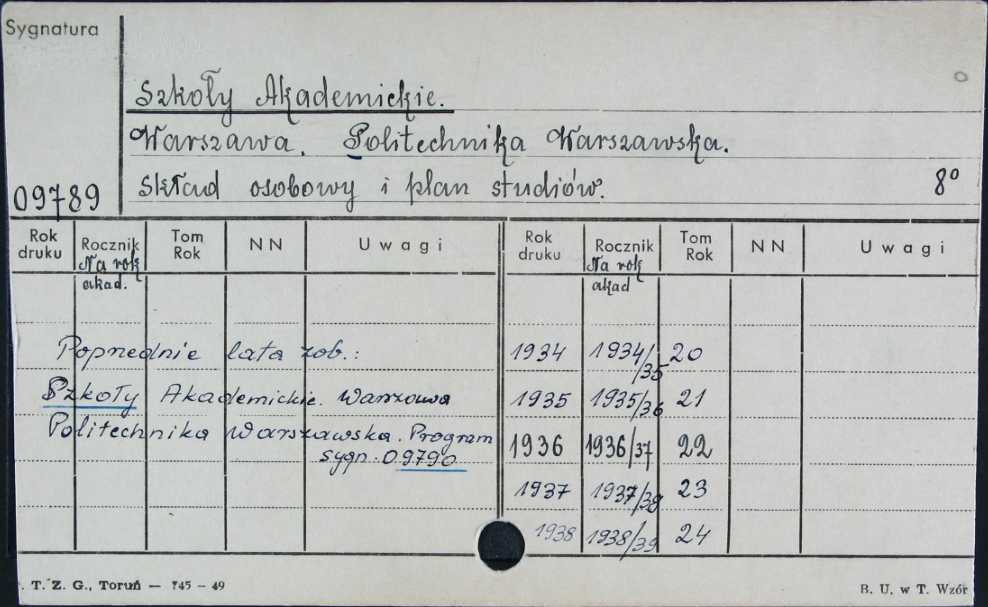 Sygnatura
Szkoły Akademickie.
Warszawa. Politechnika Warszawska.
09789 Skład osobowy i plan studiów. 8°
Rok druku Rocznik Tom Rok NN Uwagi Rok druku Rocznik Tom Rok NN Uwagi
Na rok akad. Na rok akad
Poprzednie lata zob.: 1934 1934/35 20
Szkoły Akademickie. Warszawa 1935 1935/36 21
Politechnika Warszawska. Program 1936 1936/37 22
sygn. 09790
1937 1937/38 23
1938 1938/39 24
T. Z. G., Toruń — 745 – 49 B. U. w T. Wzór